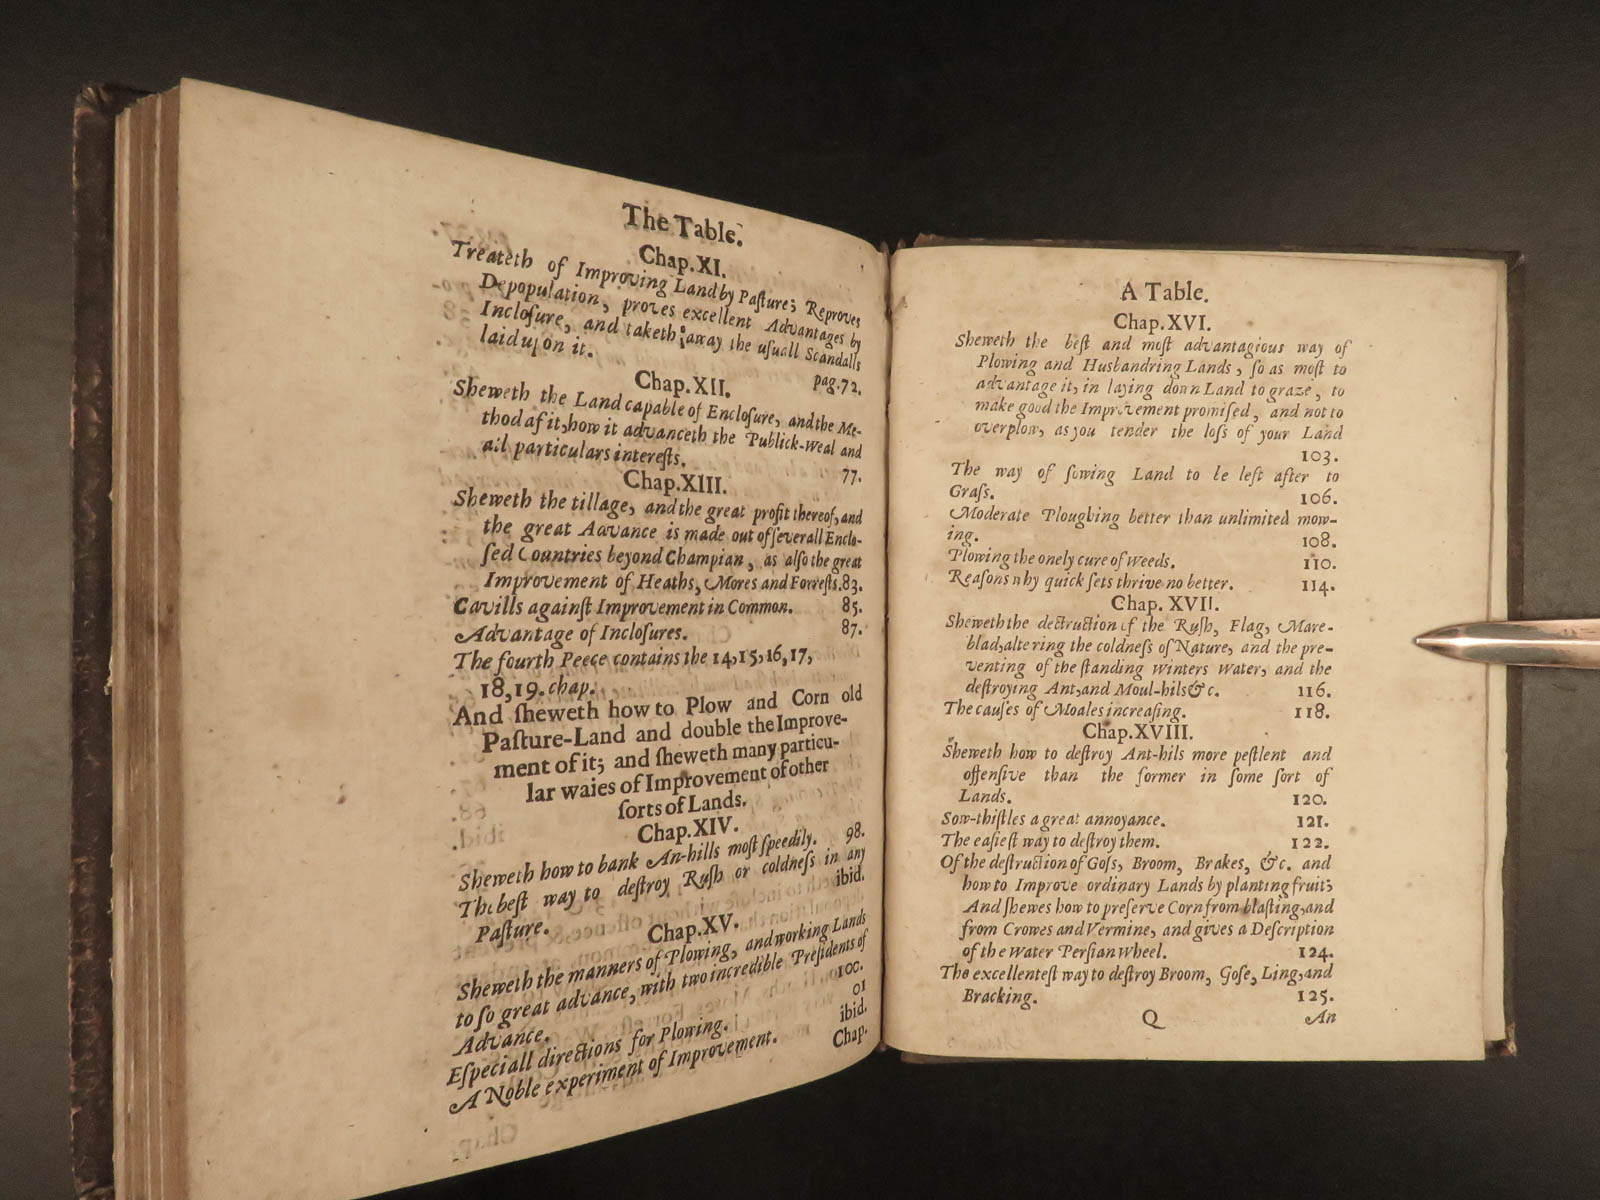 The Table.
Chap. XI.
Treateth of Improving Land by Paſture; Reproves
Depopulation, proves excellent Advantages by
Incloſure, and taketh away the uſuall Scandalls
laid upon it. pag. 72.
Chap. XII.
Sheweth the Land capable of Encloſure, and the Me-
thod af it, how it advanceth the Publick-Weal and
all particulars intereſts. 77.
Chap. XIII.
Sheweth the tillage, and the great profit thereof, and
the great Advance is made out of ſeverall Enclo-
ſed Countries beyond Champian, as alſo the great
Improvement of Heaths, Mores and Forreſts. 83.
Cavills againſt Improvement in Common. 85.
Advantage of Incloſures. 87.
The fourth Peece contains the 14, 15, 16, 17,
18, 19. chap.
And ſheweth how to Plow and Corn old
Paſture-Land and double the Improve-
ment of it; and ſheweth many particu-
lar waies of Improvement of other
ſorts of Lands.
Chap. XIV.
Sheweth how to bank An-hills moſt ſpeedily. 98.
The beſt way to deſtroy Ruſh or coldneſs in any
Paſture. ibid.
Chap. XV.
Sheweth the manners of Plowing, and working Lands
to ſo great advance, with two incredible Preſidents of
Advance. 100.
Eſpeciall directions for Plowing. 01
A Noble experiment of Improvement. ibid.
Chap.
A Table.
Chap. XVI.
Sheweth the beſt and moſt advantagious way of
Plowing and Husbandring Lands, ſo as moſt to
advantage it, in laying down Land to graze, to
make good the Improvement promiſed, and not to
overplow, as you tender the loſs of your Land
103.
The way of ſowing Land to be left after to
Graſs. 106.
Moderate Ploughing better than unlimited mow-
ing. 108.
Plowing the onely cure of Weeds. 110.
Reaſons why quick ſets thrive no better. 114.
Chap. XVII.
Sheweth the deſtruction of the Ruſh, Flag, Mare-
blad, altering the coldneſs of Nature, and the pre-
venting of the ſtanding Winters Water, and the
deſtroying Ant, and Moul-hils &c. 116.
The cauſes of Moales increaſing. 118.
Chap. XVIII.
Sheweth how to deſtroy Ant-hils more peſtlent and
offenſive than the former in ſome ſort of
Lands. 120.
Sow-thiſtles a great annoyance. 121.
The eaſieſt way to deſtroy them. 122.
Of the deſtruction of Goſs, Broom, Brakes, &c. and
how to Improve ordinary Lands by planting fruit;
And ſhewes how to preſerve Corn from blaſting, and
from Crowes and Vermine, and gives a Deſcription
of the Water Perſian Wheel. 124.
The excellenteſt way to deſtroy Broom, Goſe, Ling, and
Bracking. 125.
Q An